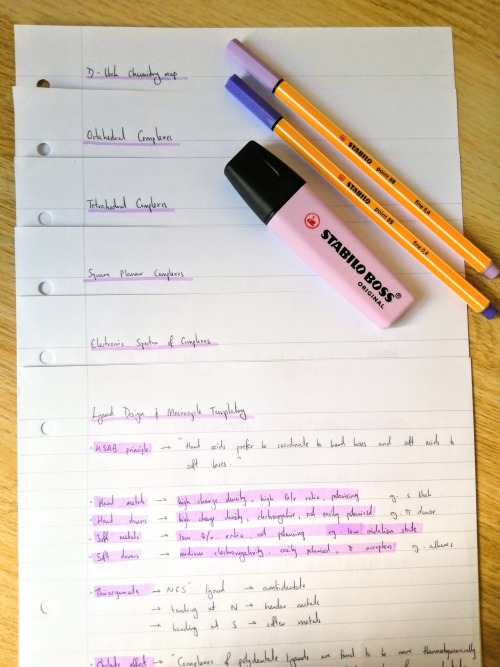 D-block chemistry map
Octahedral Complexes
Tetrahedral Complexes
Square Planar Complexes
Electronic Spectra of Complexes
Ligand Design & Macrocycle Templating
· HSAB principle → "Hard acids prefer to coordinate to hard bases and soft acids to
soft bases."
· Hard metals → high charge density, high Q/r ratio, polarising eg. s block
· Hard donors → high charge density, electronegative, not easily polarised eg. σ donor
· Soft metals → low Q/r ratio, not polarising eg. low oxidation state
· Soft donors → medium electronegativity, easily polarised, π acceptors eg. alkenes
· Thiocyanate → NCS⁻ ligand → ambidentate
→ bonding at N → harder metals
→ bonding at S → softer metals
· Chelate effect → "Complexes of polydentate ligands are found to be more thermodynamically
STABILO point 88 fine 0.4
STABILO point 88 fine 0.4
STABILO BOSS®
ORIGINAL